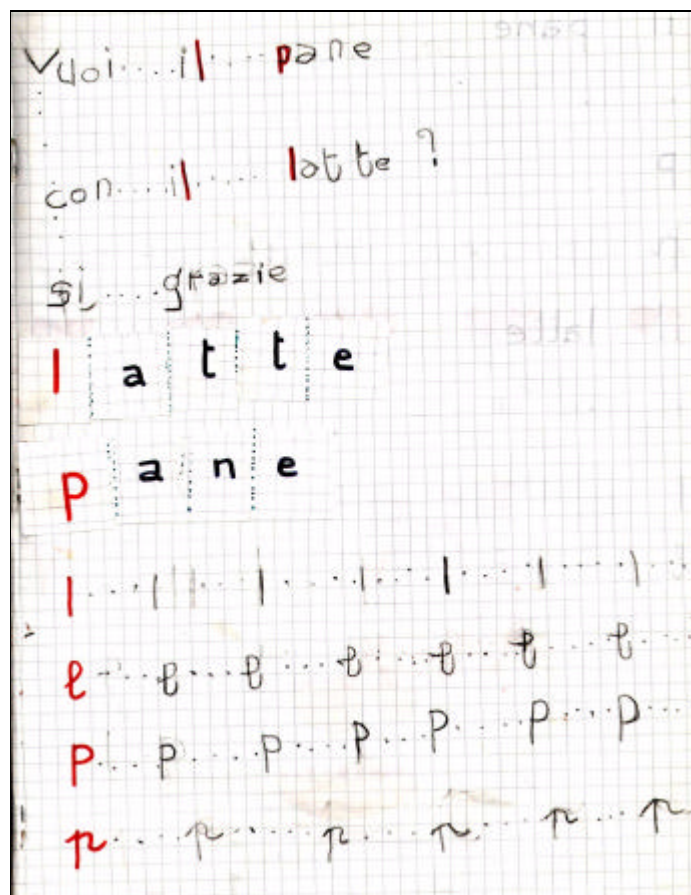 Vuoi....il.....pane
con....il...... latte ?
si....grazie
l a t t e
p a n e
l...l...l....l...l....l...l...
l...l...l...l...l...l...l...
p...p....p....p...p...p...p...
p....p.....p....p....p....p